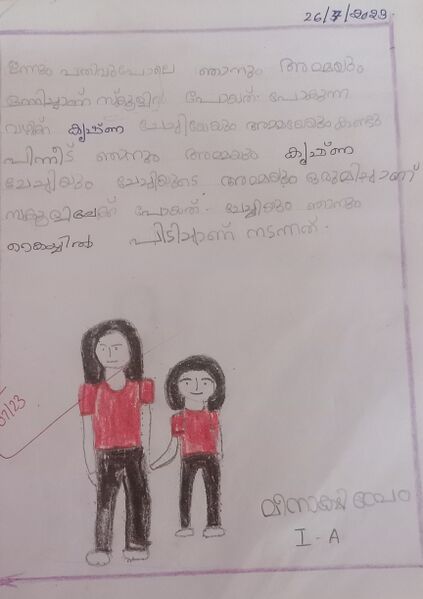 26/7/2023.
ഇന്നും പതിവുപോലെ ഞാനും അമ്മയും
ഒന്നിച്ചാണ് സ്കൂളിൽ പോയത്. പോകുന്ന
വഴിക്ക് കൃഷ്ണ ചേച്ചിയേയും അമ്മയേയും കണ്ടു
പിന്നീട് ഞാനും അമ്മയും കൃഷ്ണ
ചേച്ചിയും ചേച്ചിയുടെ അമ്മയും ഒരുമിച്ചാണ്
സ്കൂളിലേക്ക് പോയത്. ചേച്ചിയും ഞാനും
കൈയ്യിൽ പിടിച്ചാണ് നടന്നത്.
07/23
I - A